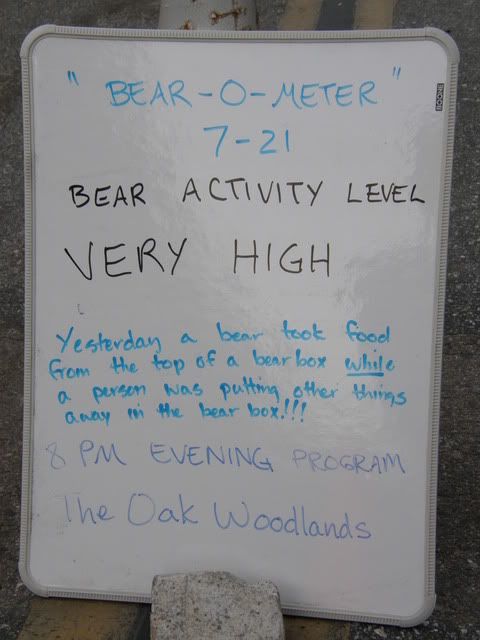 " BEAR-O-METER "
7-21
BEAR ACTIVITY LEVEL
VERY HIGH
Yesterday a bear took food
from the top of a bear box while
a person was putting other things
away in the bear box!!!
8 PM EVENING PROGRAM
The Oak Woodlands